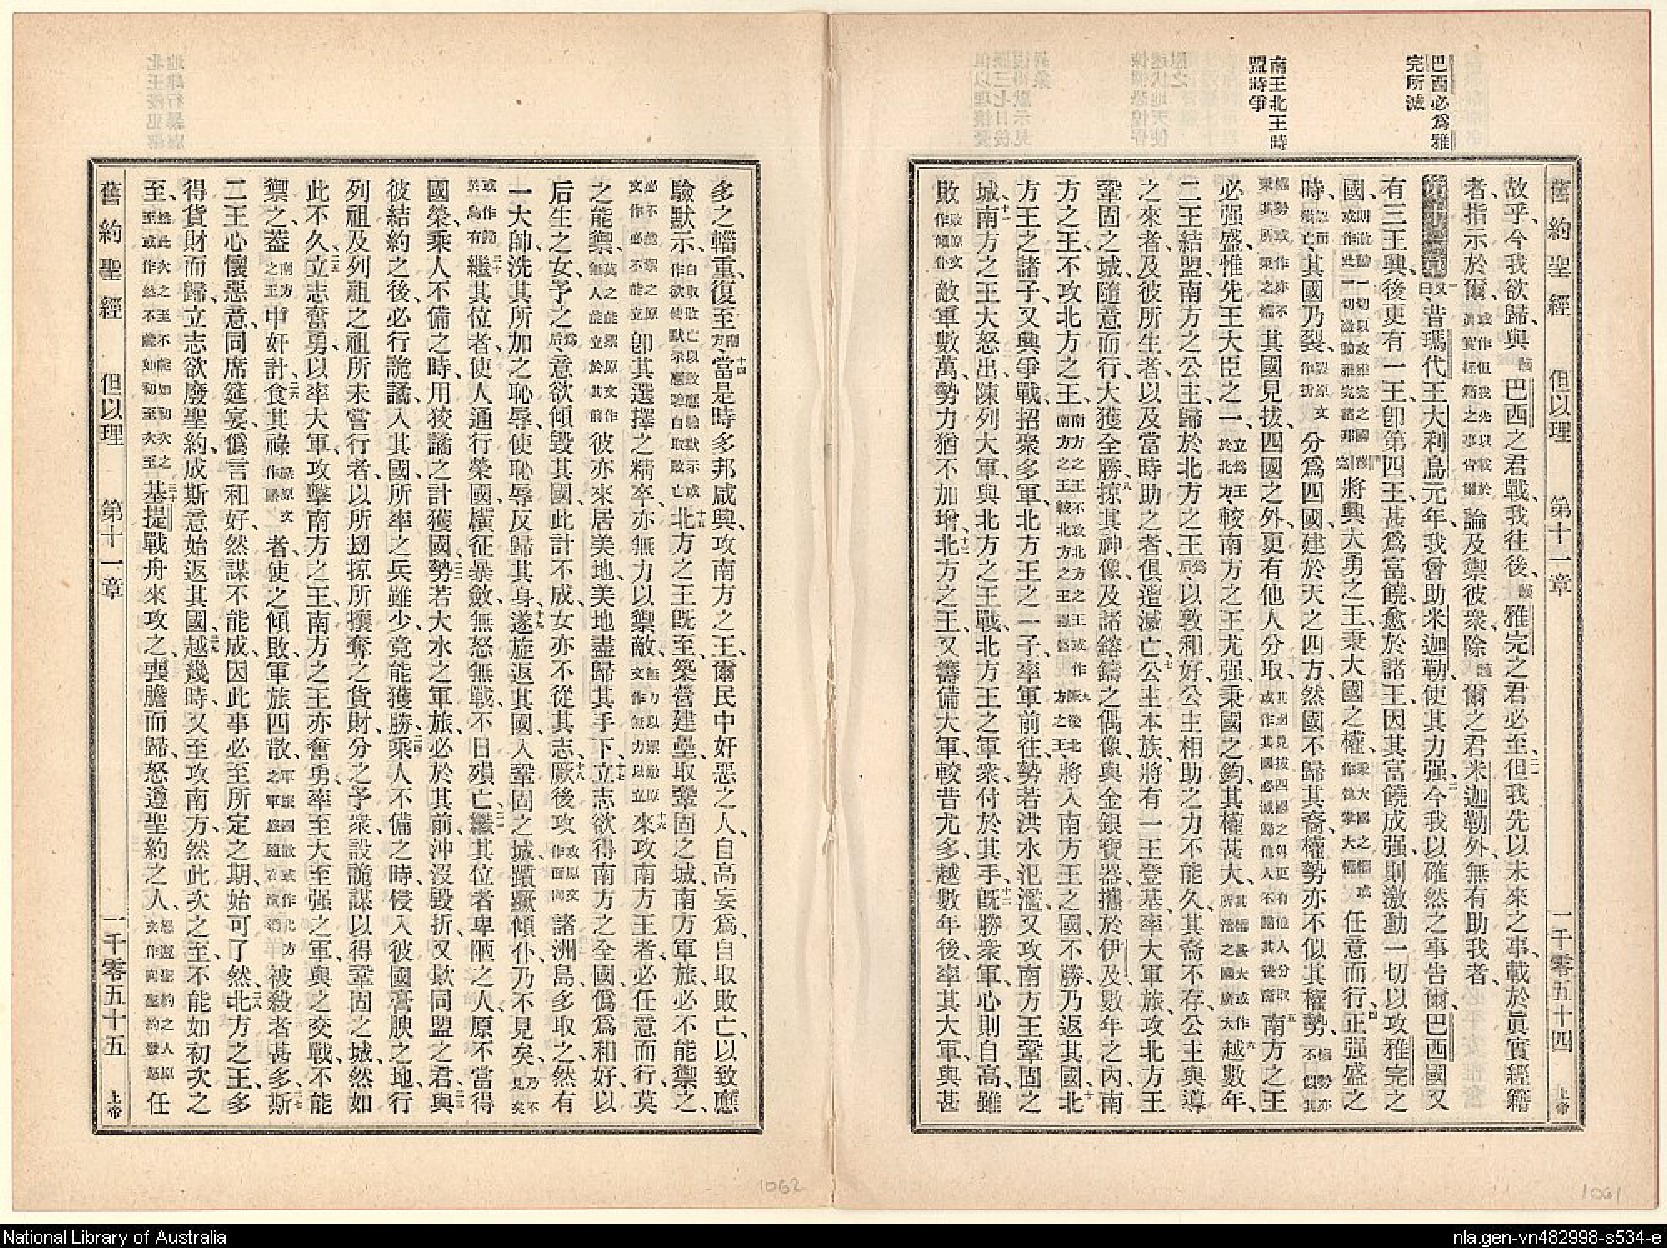 巴西必爲雅
完所滅
南王北王時
盟時爭
舊約聖經 但以理 第十一章 一千零五十四 上帝
故乎、今我欲歸與巴西之君戰、我往後、雅完之君必至、但我先以未來之事、載於眞實經籍
者、指示於爾、論及禦彼衆、除爾之君米迦勒外、無有助我者、
昔瑪代王大利烏元年、我曾助米迦勒、使其力强、今我以確然之事告爾、巴西國又
有三王興、後更有一王、卽第四王、甚爲富饒、愈於諸王、因其富饒成强、則激動一切以攻雅完之
國、將興大勇之王、秉大國之權、任意而行、正强盛之
時、其國乃裂、分爲四國、建於天之四方、然國不歸其裔、權勢亦不似其權勢、
其國見拔、四國之外、更有他人分取、南方之王
必强盛、惟先王大臣之一、較南方之王尤强、秉國之鈞、其權甚大、越數年、
二王結盟、南方之公主、歸於北方之王、以敦和好、公主相助之力不能久、其裔不存、公主與導
之來者、及彼所生者、以及當時助之者、俱遭滅亡、公主本族、將有一王登基、率大軍旅、攻北方王
鞏固之城、隨意而行、大獲全勝、掠其神像、及諸鎔鑄之偶像、與金銀寶器、攜於伊及、數年之內、南
方之王、不攻北方之王、將入南方王之國、不勝、乃返其國、北
方王之諸子、又興爭戰、招聚多軍、北方王之一子、率軍前往、勢若洪水氾濫、又攻南方王鞏固之
城、南方之王大怒、出陳列大軍、與北方之王戰、北方王之軍衆、付於其手、旣勝衆軍、心則自高、雖
敗敵軍數萬、勢力猶不加增、北方之王、又籌備大軍、較昔尤多、越數年後、率其大軍、與甚
多之輜重、復至、當是時多邦咸興、攻南方之王、爾民中奸惡之人、自高妄爲、自取敗亡、以致應
驗默示、北方之王旣至、築營建壘、取鞏固之城、南方軍旅必不能禦之、
之能禦、卽其選擇之精卒、亦無力以禦敵、來攻南方王者、必任意而行、莫
彼亦來居美地、美地盡歸其手下、立志欲得南方之全國、僞爲和好、以
后生之女、予之、意欲傾毀其國、此計不成、女亦不從其志、厥後攻諸洲島、多取之、然有
一大帥、洗其所加之恥辱、使恥辱反歸其身、遂旋返其國、入鞏固之城、躓蹶傾仆、乃不見矣、
繼其位者、使人通行榮國、橫征暴斂、無怒無戰、不日殞亡、繼其位者、卑陋之人、原不當得
國榮、乘人不備之時、用狡譎之計獲國、勢若大水之軍旅、必於其前、沖沒毀折、又欺同盟之君、與
彼結約之後、必行詭譎、入其國、所率之兵雖少、竟能獲勝、乘人不備之時、侵入彼國膏腴之地、行
列祖及列祖之祖所未嘗行者、以所刼掠所攘奪之貨財、分之予衆、設詭謀以得鞏固之城、然如
此不久、立志奮勇、以率大軍攻擊南方之王、南方之王亦奮勇、率至大至强之軍、與之交戰、不能
禦之、蓋中奸計、食其祿者、使之傾敗、軍旅四散、被殺者甚多、斯
二王心懷惡意、同席筵宴、僞言和好、然謀不能成、因此事必至所定之期、始可了然、北方之王、多
得貨財而歸、立志欲廢聖約、成斯意始返其國、越幾時、又至攻南方、然此次之至、不能如初次之
至、基提戰舟來攻之、喪膽而歸、怒遵聖約之人、任
舊約聖經 但以理 第十一章 一千零五十五 上帝
1062
1061
National Library of Australia
nla.gen-vn482998-s534-e